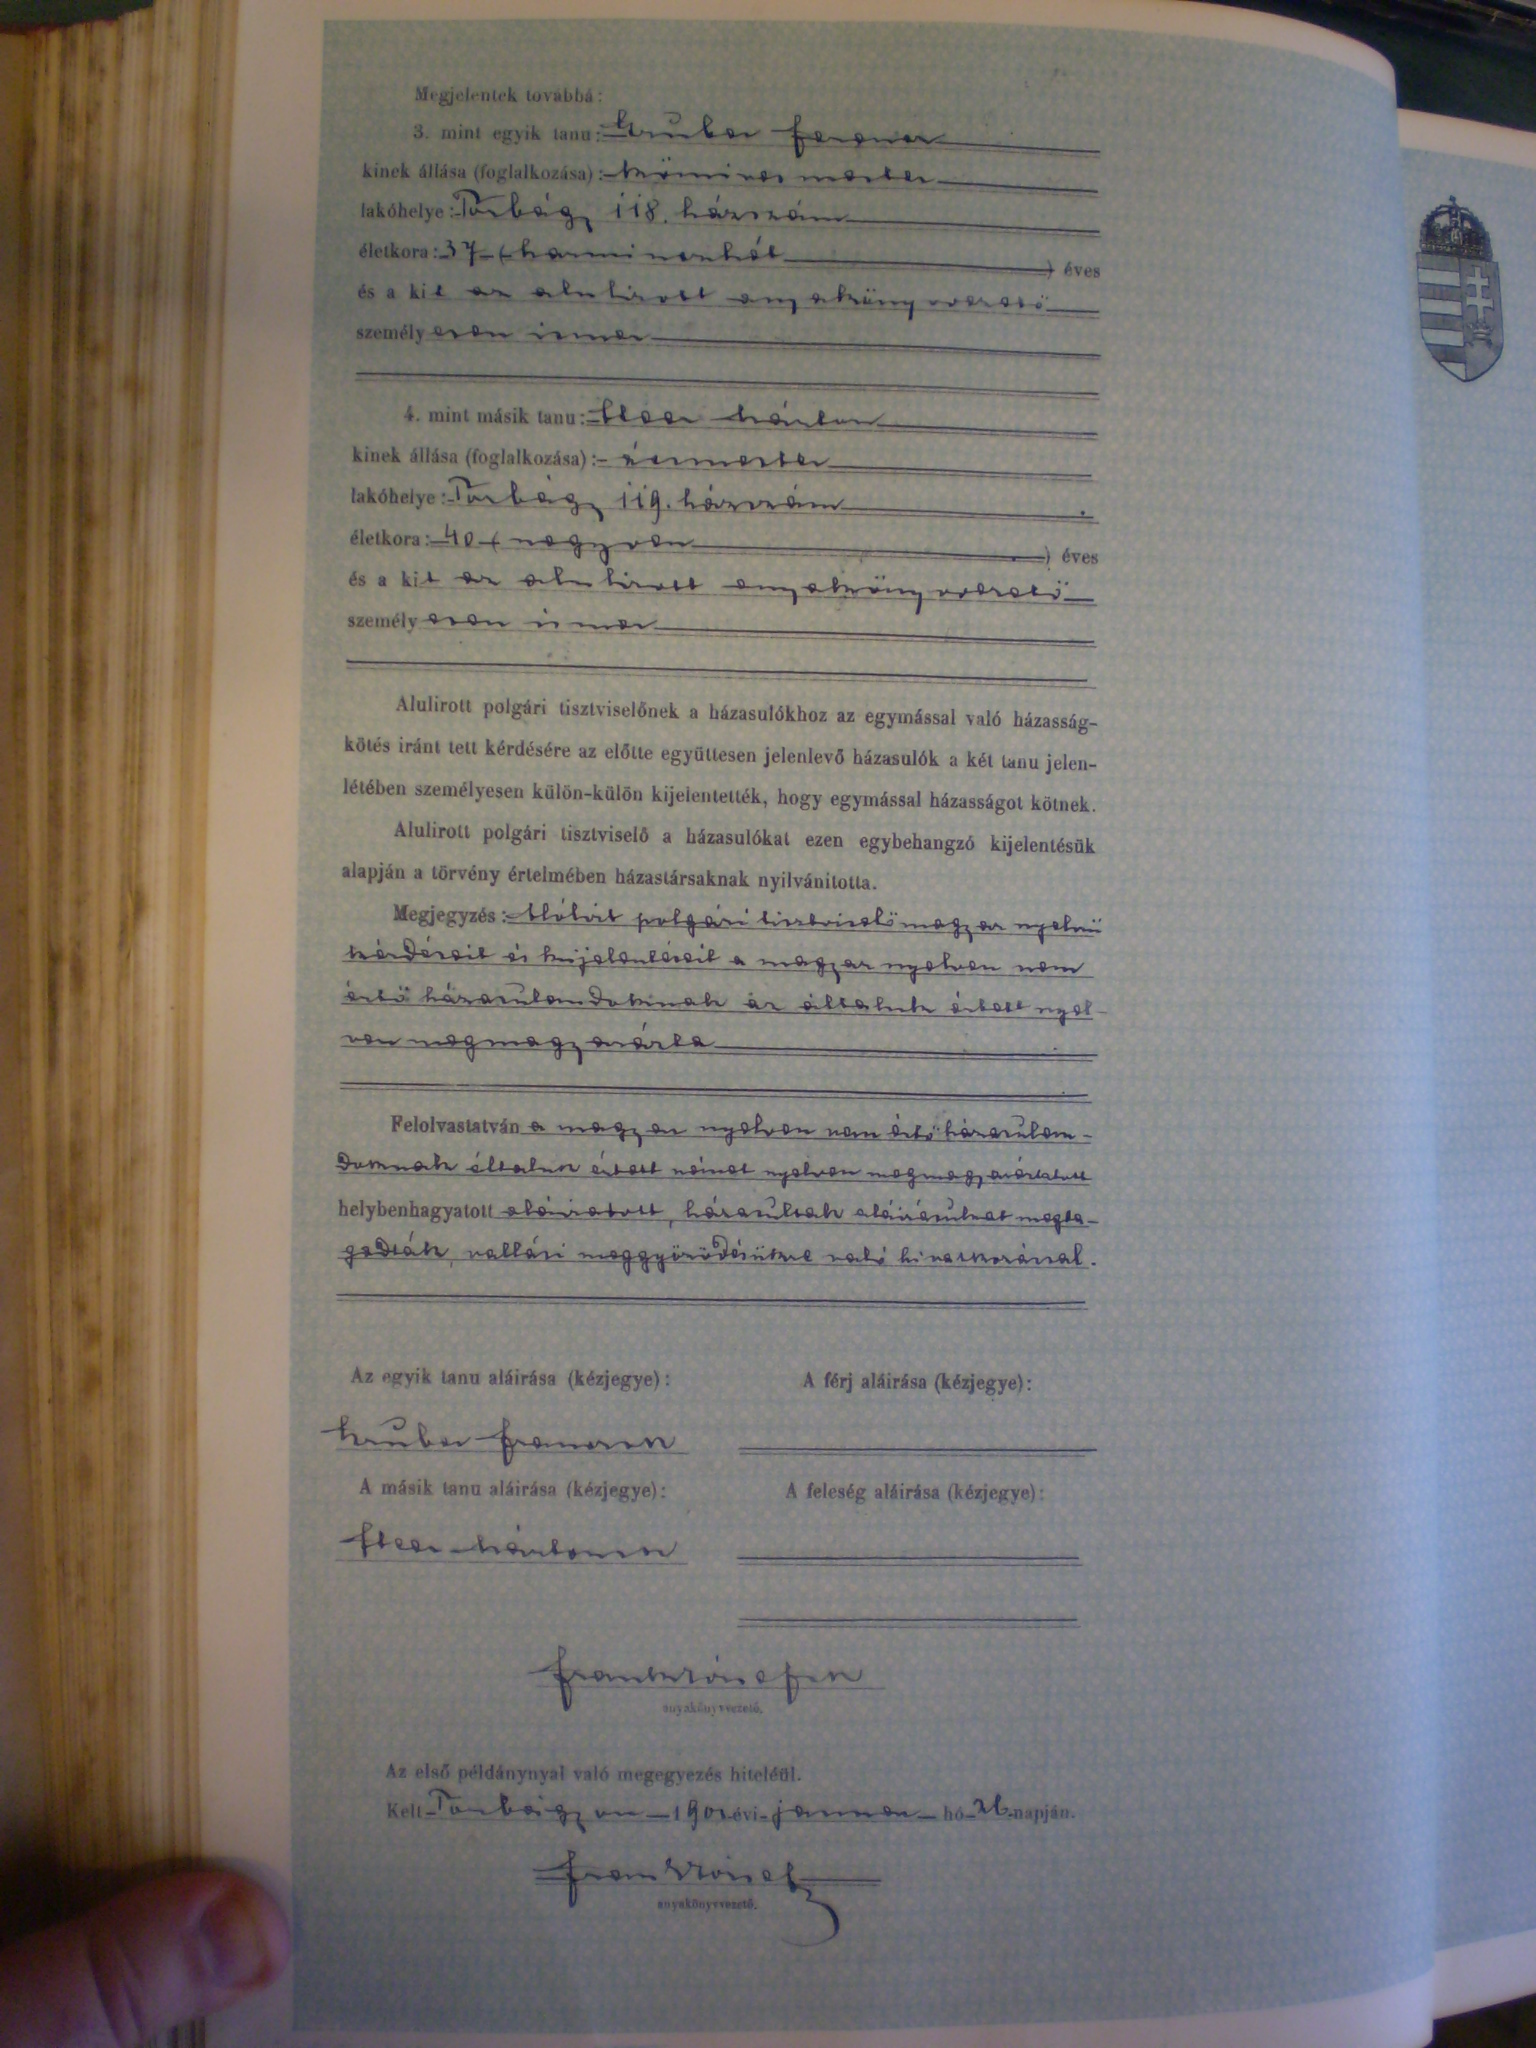 Megjelentek továbbá:
3. mint egyik tanu: Gruber Ferencz
kinek állása (foglalkozása): kőmives mester
lakóhelye: Torbágy 118. házszám
életkora: 37 (harminczhét) éves
és a kit az alulirott anyakönyvvezető
személyesen ismer
4. mint másik tanu: Márton
kinek állása (foglalkozása):
lakóhelye: Torbágy 119. házszám
életkora: 40 (negyven) éves
és a kit az alulirott anyakönyvvezető
személyesen ismer
Alulirott polgári tisztviselőnek a házasulókhoz az egymással való házasság-
kötés iránt tett kérdésére az előtte együttesen jelenlevő házasulók a két tanu jelen-
létében személyesen külön-külön kijelentették, hogy egymással házasságot kötnek.
Alulirott polgári tisztviselő a házasulókat ezen egybehangzó kijelentésük
alapján a törvény értelmében házastársaknak nyilvánitotta.
Megjegyzés: polgári tisztviselő magyar nyelvű
kérdéseit és kijelentéseit a magyar nyelven nem
értő házasulandóknak az általuk értett nyel-
ven megmagyarázta
Felolvastatván a magyar nyelven nem értő házasulan-
dóknak általuk értett német nyelven megmagyaráztatott
helybenhagyatott aláiratott, házasultak aláirásukat megta-
gadták, vallási meggyőződésükre való hivatkozással.
Az egyik tanu aláirása (kézjegye): A férj aláirása (kézjegye):
Gruber Ferencz
A másik tanu aláirása (kézjegye): A feleség aláirása (kézjegye):
Márton
anyakönyvvezető.
Az első példánynyal való megegyezés hiteléül.
Kelt Torbágyon 1901 évi január hó 26 napján.
anyakönyvvezető.